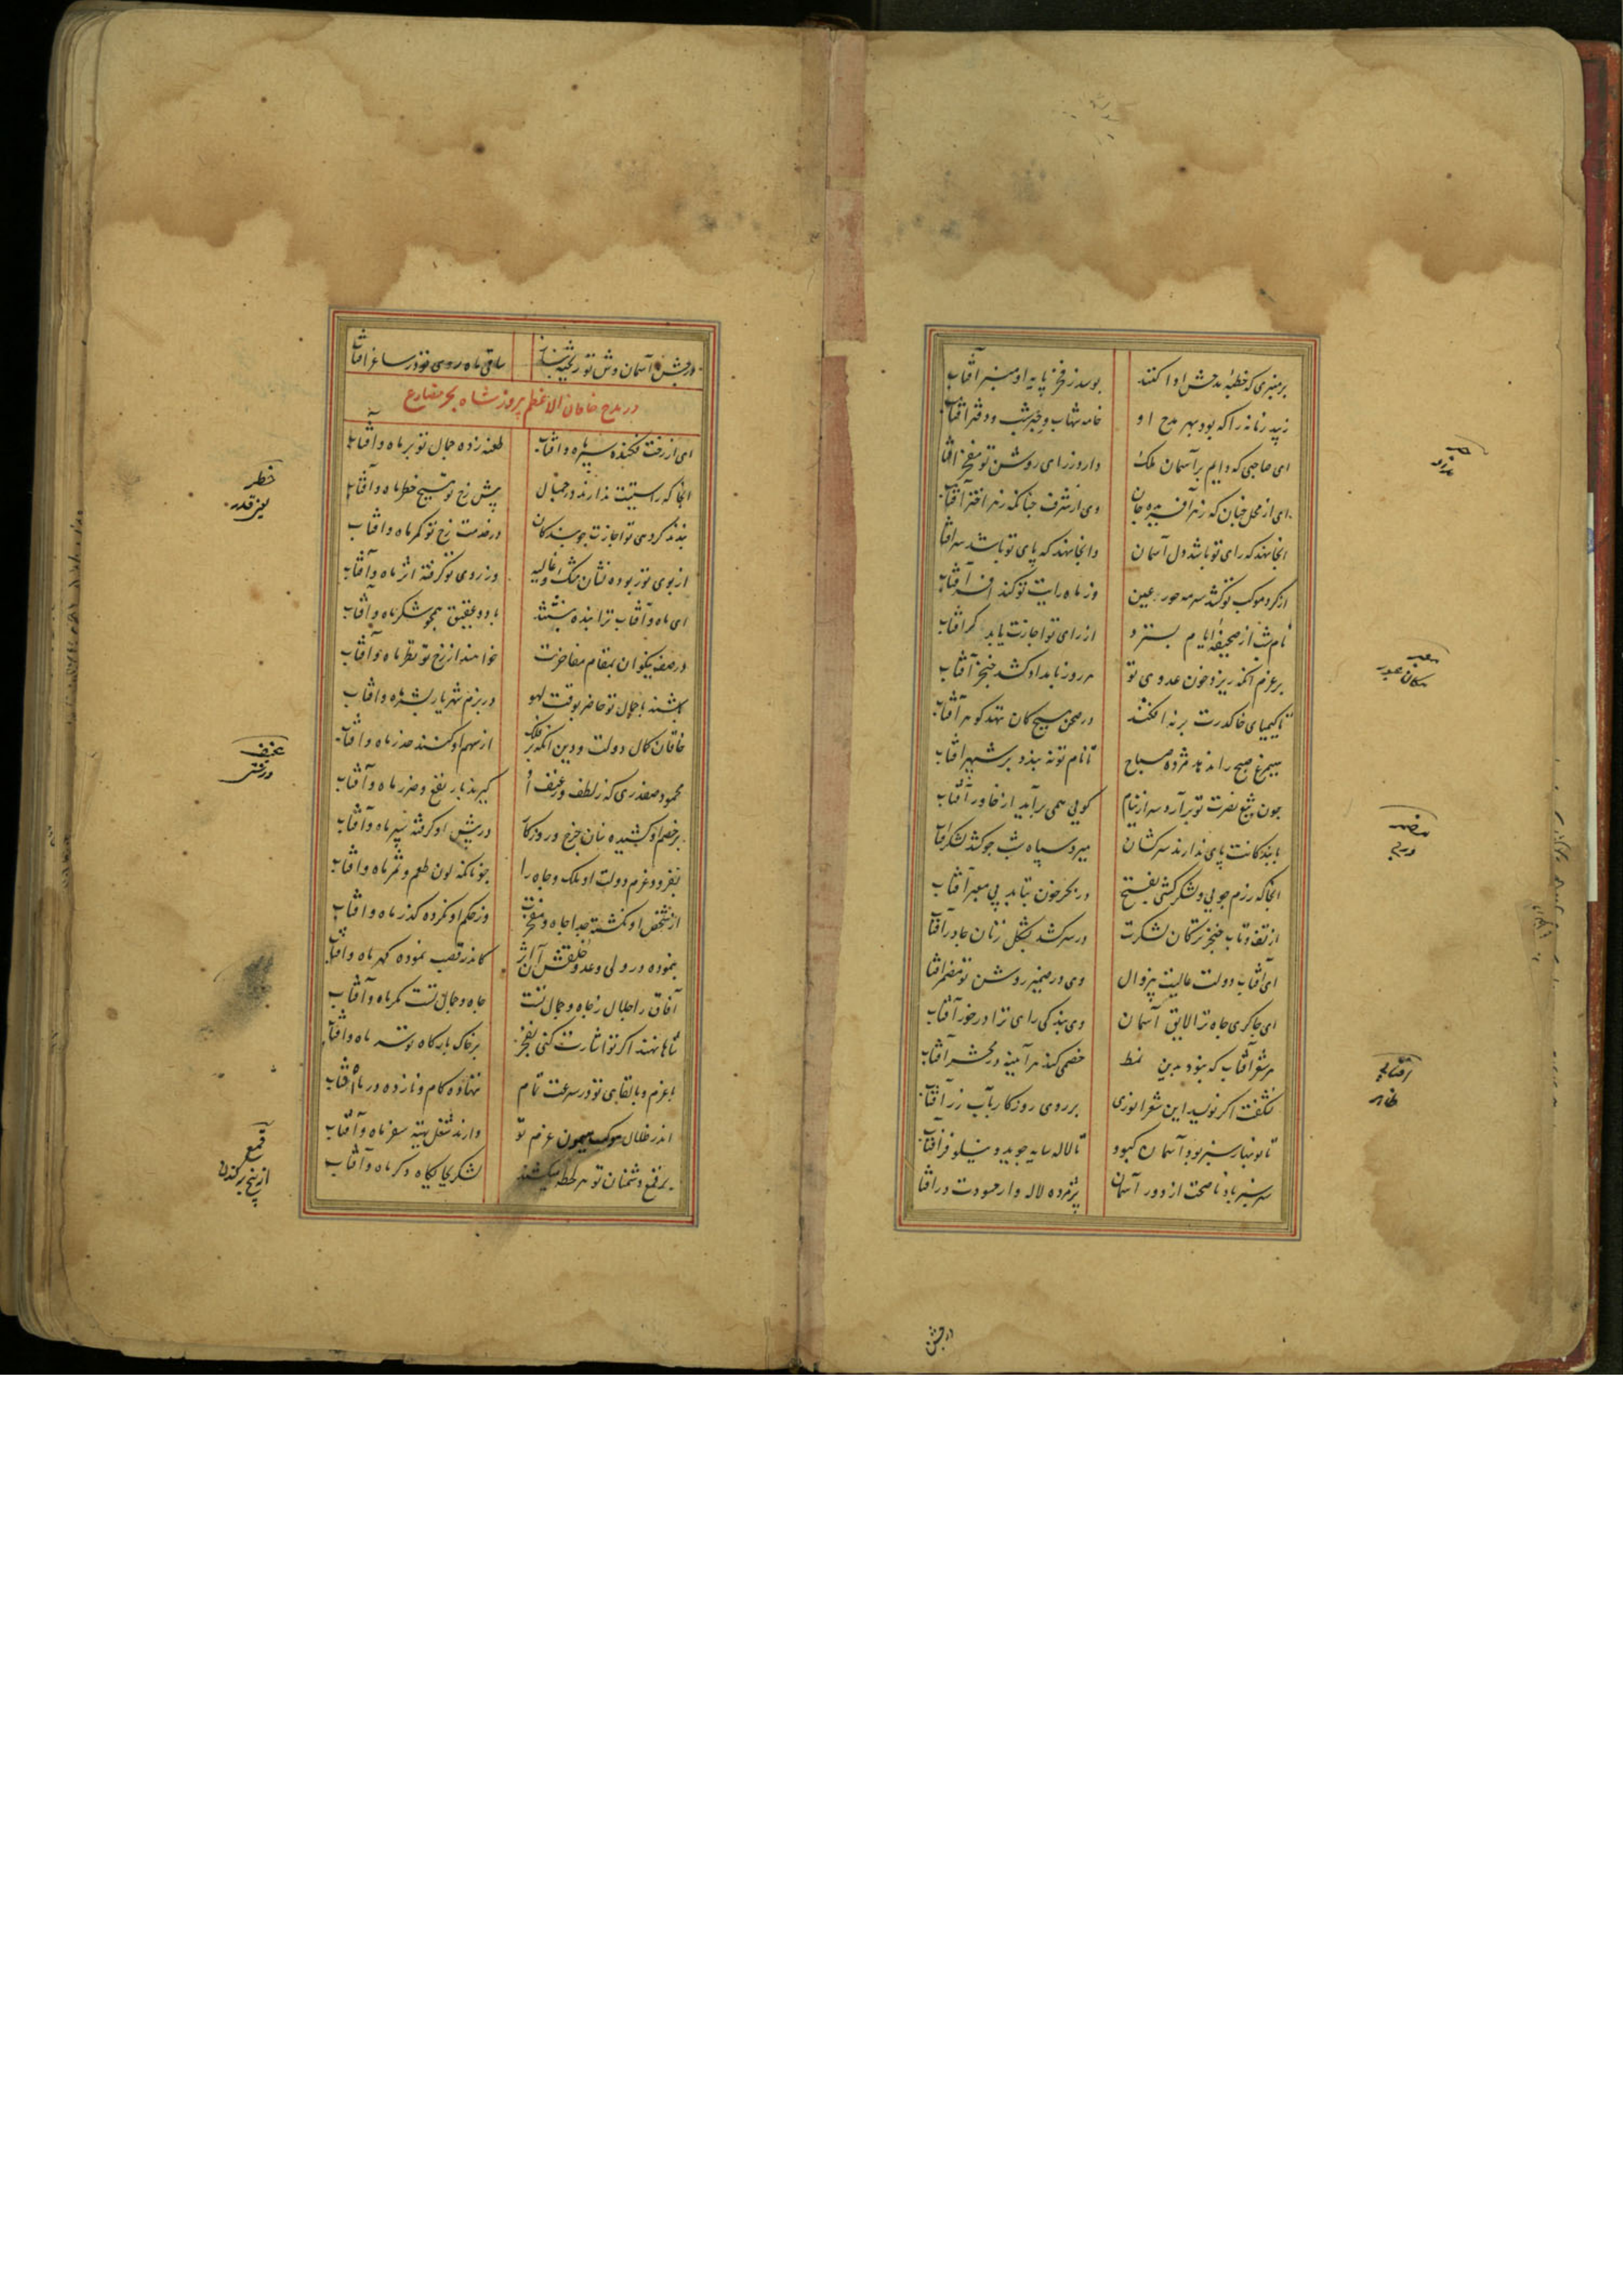 بر منبری که خطبهٔ مدحش ادا کنند بوسد ز فخر پایهٔ او منبر آفتاب
زیبد زمانه را که بود بهر مدح او خامه شهاب و حبر شب و دفتر آفتاب
ای صاحبی که دایم بر آسمان ملک دارد ز رای روشن تو مفخر آفتاب
ای از محل چنان که زهر آفریده جان وی از شرف چنانکه زهر اختر آفتاب
آنجا نهد که رای تو باشد دل آسمان وانجا نهد که پای تو باشد سر آفتاب
از گرد موکب تو کشد سرمه حور عین وز ماه رایت تو کند افسر آفتاب
نام شب از صحیفهٔ ایام بسترد از رای تو اجازت یابد گر آفتاب
بر عزم آنکه ریزد خون عدوی تو هر روز بامداد کشد خنجر آفتاب
تا کیمیای خاک درت بر نیفکند در صحن هیچ کان ننهد گوهر آفتاب
سیمرغ صبح را ندهد مژدهٔ صباح تا نام تو نبندد بر شهپر آفتاب
چون تیغ نصرت تو برآرد سر از نیام گویی همی برآید از خاور آفتاب
با بندگانت پای ندارند سرکشان میرد سپاه شب چو کشد لشکر آفتاب
آنجا که رزم جویی و لشکر کشی بفتح در بحر خون نتابد بی معبر آفتاب
از تف و تاب خنجر ترکان لشکرت در سر کشد بشکل زنان چادر آفتاب
ای آفتاب دولت عالیت بیزوال وی در ضمیر روشن تو مضمر آفتاب
ای چاکری جاه ترا لایق آسمان وی بندگی رای ترا درخور آفتاب
هر شعر آفتاب که نبود بدین نمط خصمی کند هر آینه در محشر آفتاب
نشگفت اگر نویسد این شعر انوری بر روی روزگار بآب زر آفتاب
تا نوبهار سبز بود و آسمان کبود تا لاله سایه جوید و نیلوفر آفتاب
سرسبز باد ناصحت از دور آسمان پژمرده لاله وار حسودت در آفتاب
در جشن
معبر
مکان عبور
مضمر
در جشن آسمان وش تو ریخته بناز ساقی ماه روی تو در ساغر آفتاب
در مدح خاقان الاعظم پیروز شاه بحر مضارع
ای از رخت فکنده سپر ماه و آفتاب طعنه زده جمال تو بر ماه و آفتاب
آنجا که راستیست ندارند در جمال پیش رخ تو هیچ خطر ماه و آفتاب
بندند گر دهی تو اجازت چو بندگان در خدمت رخ تو کمر ماه و آفتاب
از بوی تو ربوده نشان مشک و غالیه وز روی تو گرفته اثر ماه و آفتاب
ای ماه و آفتاب ترا بنده گشته‌اند با دو عقیق همچو شکر ماه و آفتاب
در صف نیکوان بمقام مفاخرت خواهند از رخ تو نظر ماه و آفتاب
باشند با جمال تو حاضر بوقت لهو در بزم شهریار بشر ماه و آفتاب
خاقان کمال دولت و دین آنکه بر فلک از سهم او کنند حذر ماه و آفتاب
محمود صفدری که ز لطف و ز عنف او گیرند بار نفع و ضرر ماه و آفتاب
بر خصم او کشیده سنان چرخ و روزگار در پیش او گرفته سپر ماه و آفتاب
بفزود عزم دولت او ملک و جاه را چونانکه لون و طعم و ثمر ماه و آفتاب
از شخص او نگشته جدا جاه و مفخرت وز حکم او نکرده گذر ماه و آفتاب
بنموده در ولی و عدو خلقش آن اثر کاندر قصب نموده گهر ماه و آفتاب
آفاق را جمال ز جاه و جمال تست جاه و جمال تست مگر ماه و آفتاب
شاها نهند اگر تو اشارت کنی بفخر بر خاک بارگاه تو سر ماه و آفتاب
با عزم و با بقای تو در سرعت تمام ننهاده گام و نازده در ماه و آفتاب
اندر ظلال موکب میمون عزم تو دارند شغل تهیهٔ سفر ماه و آفتاب
بر قمع دشمنان تو هر لحظه میکشند لشکر بجایگاه دگر ماه و آفتاب
خطر
یعنی قدر
عنف
درشتی
قمع
از بیخ برکندن